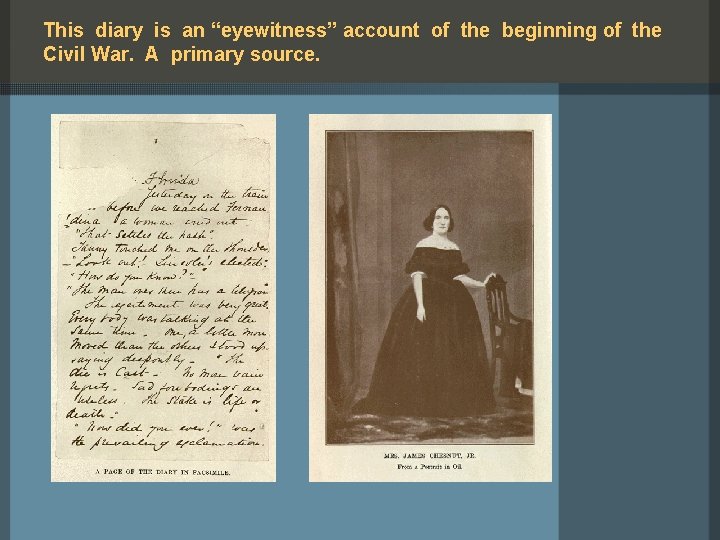 This diary is an “eyewitness” account of the beginning of the
Civil War. A primary source.
Florida
Yesterday on the train
before we reached Fernan
dina a woman cried out
"That settles the hash"
touched me on the shoulder
"Look out! Lincoln's elected."
"How do you know?"
"The man over there has a telegram
The excitement was very great
Every body was talking at the
same time. One, a little more
moved than the others stood up
saying despondently - "The
die is cast - No more vain
regrets - Sad forebodings are
useless. The stake is life or
death -"
"Now did you ever!" was
the prevailing exclamation.
A PAGE OF THE DIARY IN FACSIMILE.
MRS. JAMES CHESNUT, JR.
From a Portrait in Oil.